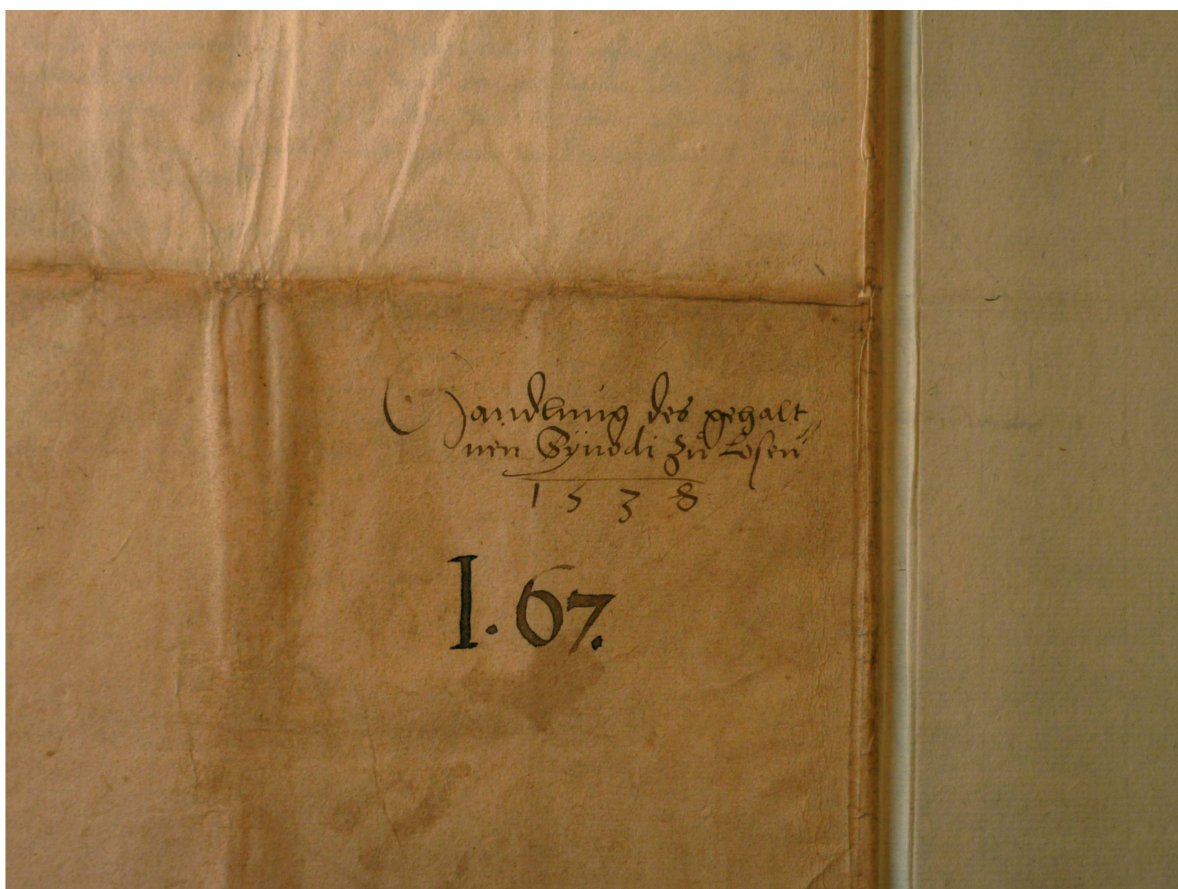 Handlung des gehalt„
nen Synodi zů Losen
1538
I. 67.